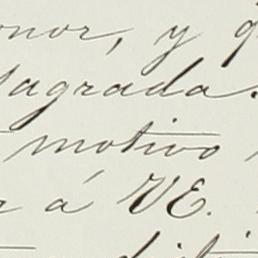 onor, y
Sagrada.
motivo
r á VE.